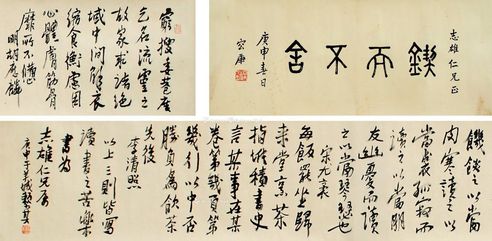 志雄仁兄正
鍥而不舍
庚申春日
窮搜委巷廣
乞名流錄之
故家求諸絕
域中間解衣
縮食衡慮困
心體膚筋骨
靡所不憊
明胡應麟
饑讀之以當
肉寒讀之以
當裘孤寂而
讀之以當朋
友幽憂而讀
之以當琴瑟也
宋尤袤
每飯罷坐歸
來堂烹茶
指堆積書史
言某事在某
卷第幾頁第
幾行以中否
勝負為飲茶
先後
李清照
以上三則皆寫
讀書之苦樂
書為
志雄仁兄屬
庚申